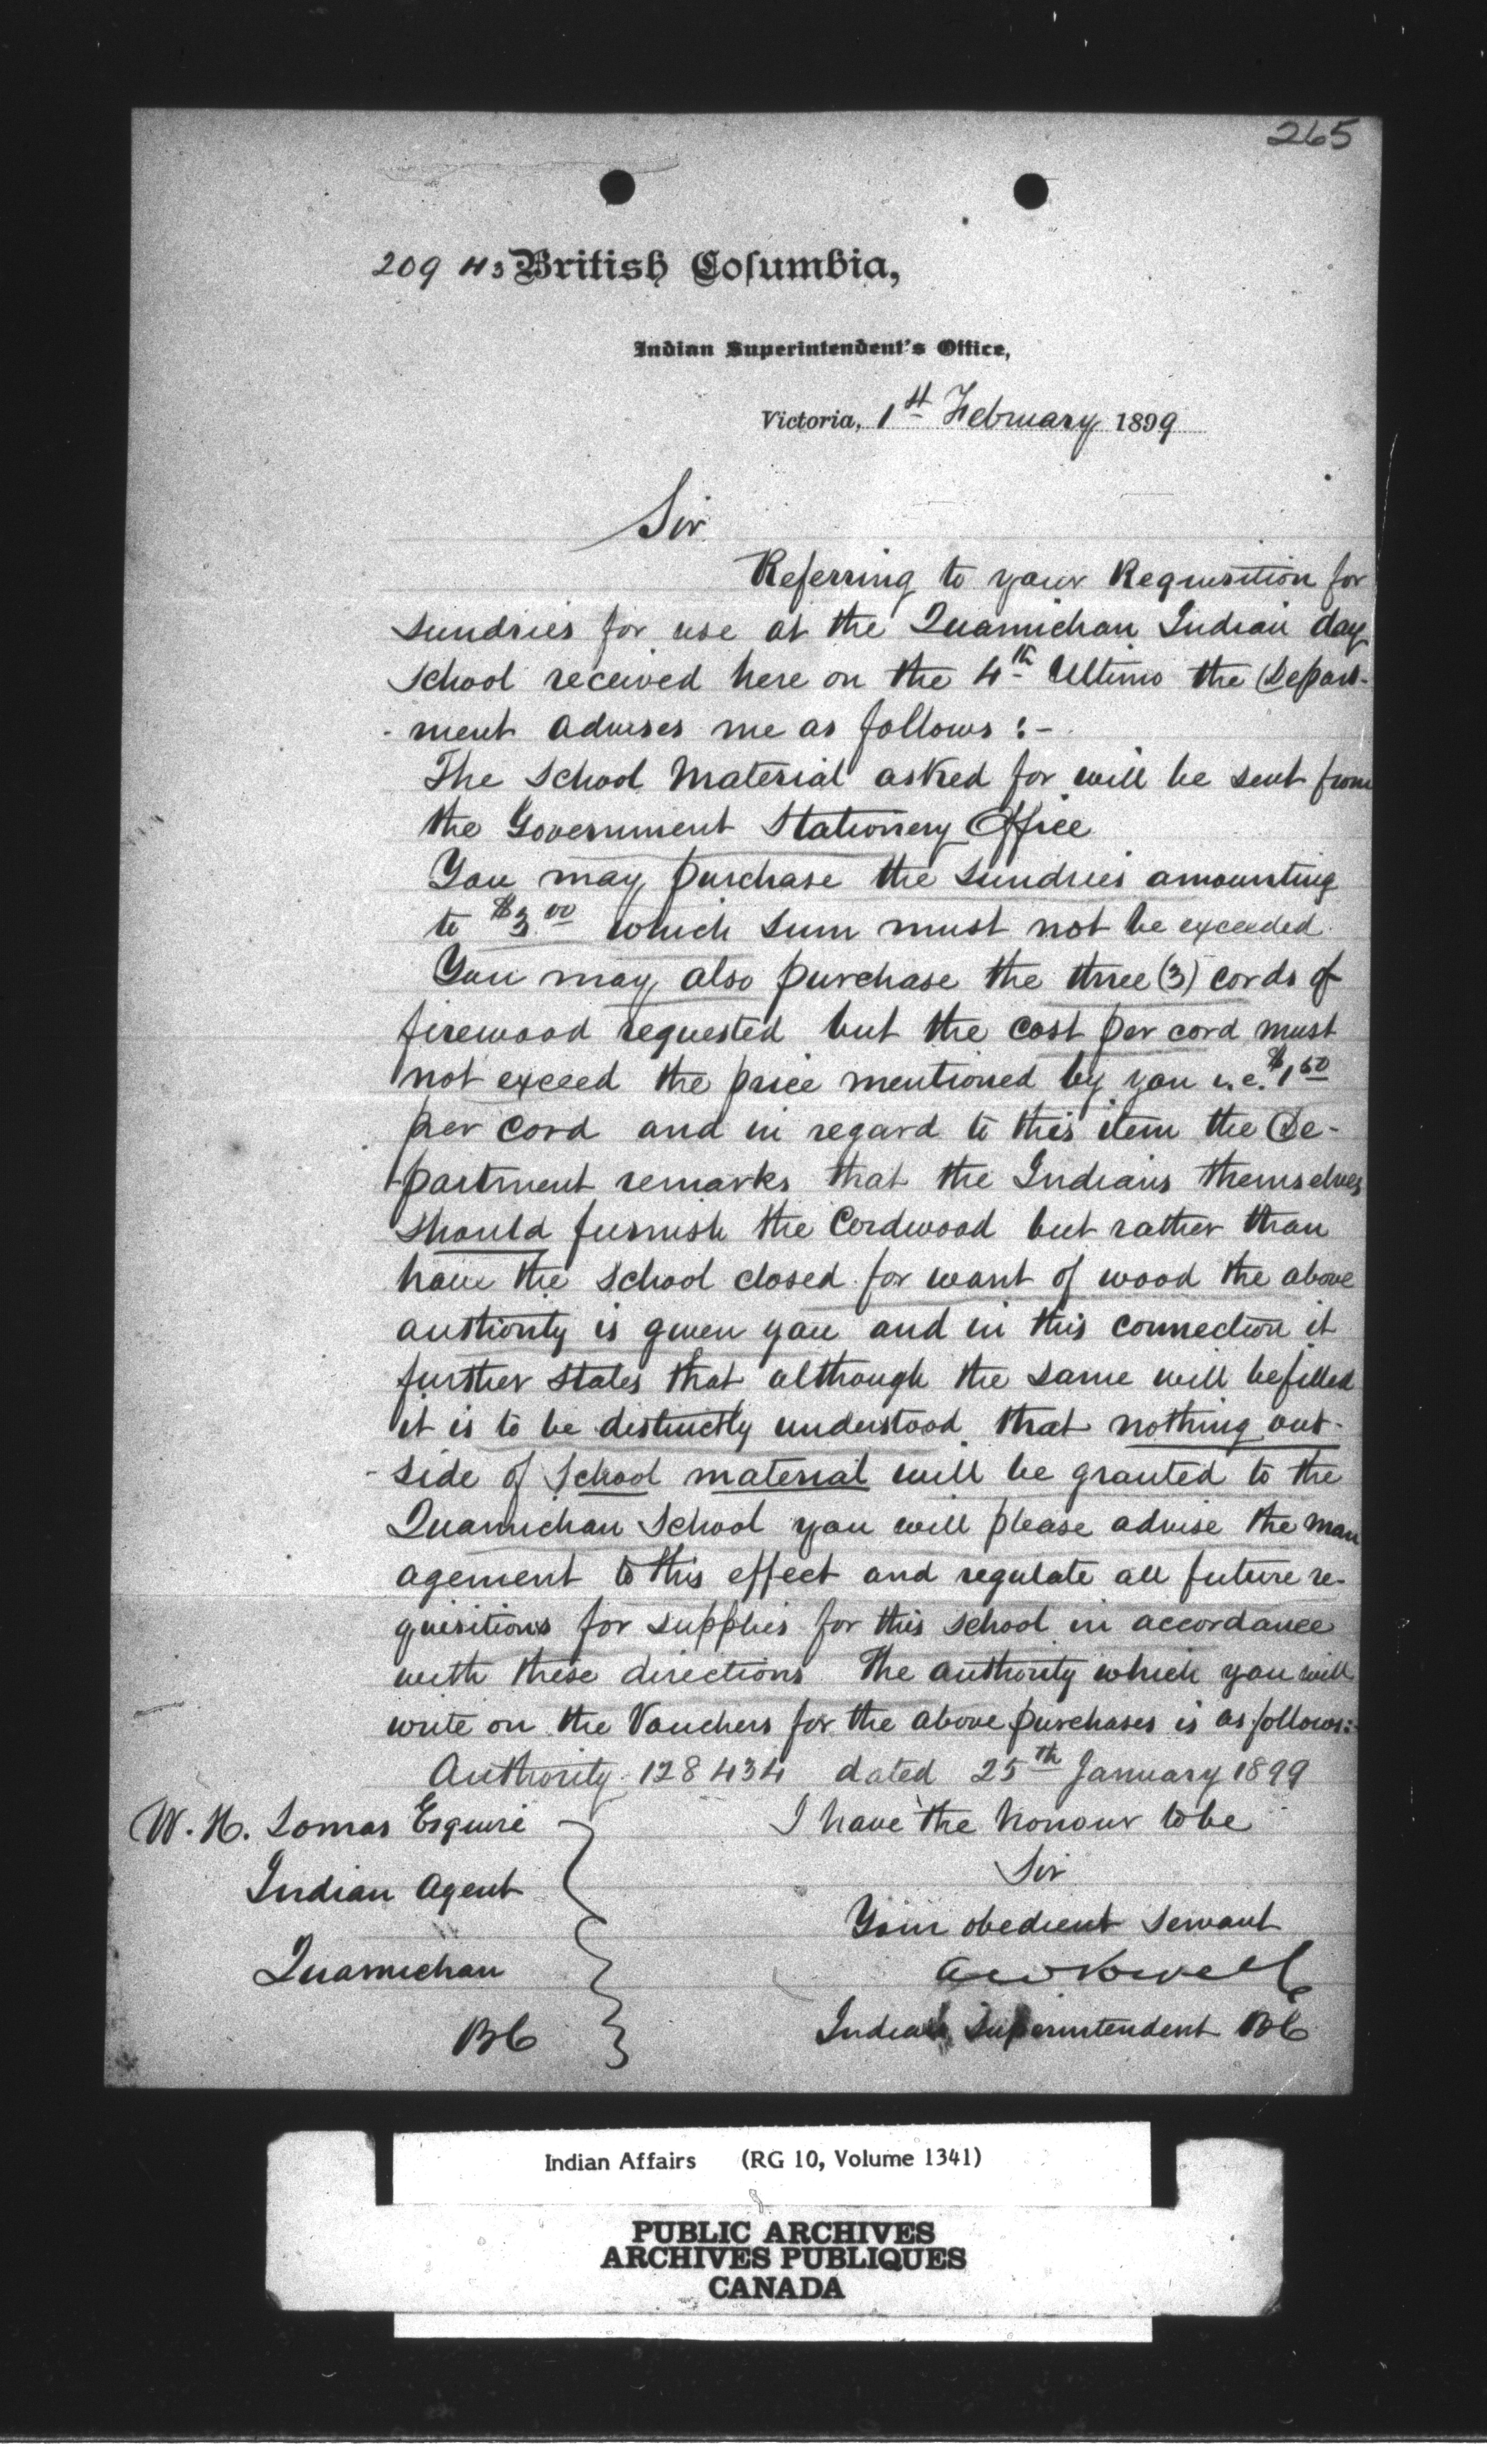 265
209 H3 British Columbia,
Indian Superintendent's Office,
Victoria, 1st February 1899
Sir
Referring to your Requisition for
sundries for use at the Quamichan Indian day
school received here on the 4th Ultimo the Depart-
-ment advises me as follows :-
The School Material asked for will be sent from
the Government Stationery Office
You may purchase the sundries amounting
to $3.00 which sum must not be exceeded.
You may also purchase the three (3) cords of
firewood requested but the cost per cord must
not exceed the price mentioned by you i.e. $1.50
per cord and in regard to this item the De-
partment remarks that the Indians themselves
should furnish the Cordwood but rather than
have the School closed for want of wood the above
authority is given you and in this connection it
further states that although the same will be filled
it is to be distinctly understood that nothing out-
-side of School material will be granted to the
Quamichan School you will please advise the man
agement to this effect and regulate all future re-
quisitions for supplies for this school in accordance
with these directions The authority which you will
write on the Vouchers for the above purchases is as follows:-
Authority 128434 dated 25th January 1899
W. H. Lomas Esquire
Indian Agent
Quamichan
BC
I have the honour to be
Sir
Your obedient servant
A W Vowell
Indian Superintendent BC
Indian Affairs (RG 10, Volume 1341)
PUBLIC ARCHIVES
ARCHIVES PUBLIQUES
CANADA